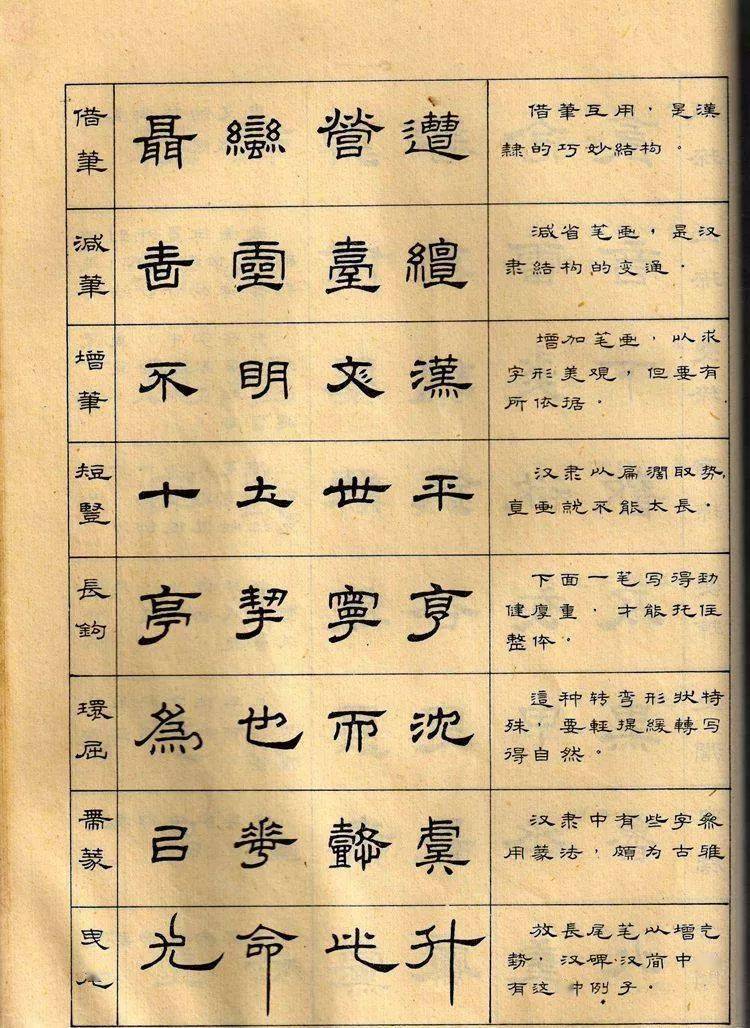 借筆
聶 蠻 營 遭
借筆互用，是漢
隸的巧妙結构。
減筆
書 靈 臺 繵
減省笔画，是汉
隶結构的变通．
增筆
不 明 文 漢
增加笔画，以求
字形美观，但要有
所依据。
短豎
十 土 世 平
汉隶以扁濶取势，
直画就不能太長．
長鉤
亭 挈 寧 亨
下面一笔写得劲
健厚重，才能托住
整体。
環屈
為 也 而 沈
這种转弯形状特
殊，要輕提緩轉写
得自然。
帶篆
己 華 懿 虞
汉隶中有些字参
用篆法，頗为古雅
曳
光 命 此 升
放長尾笔以增气
勢，汉碑汉简中
有这 例子．